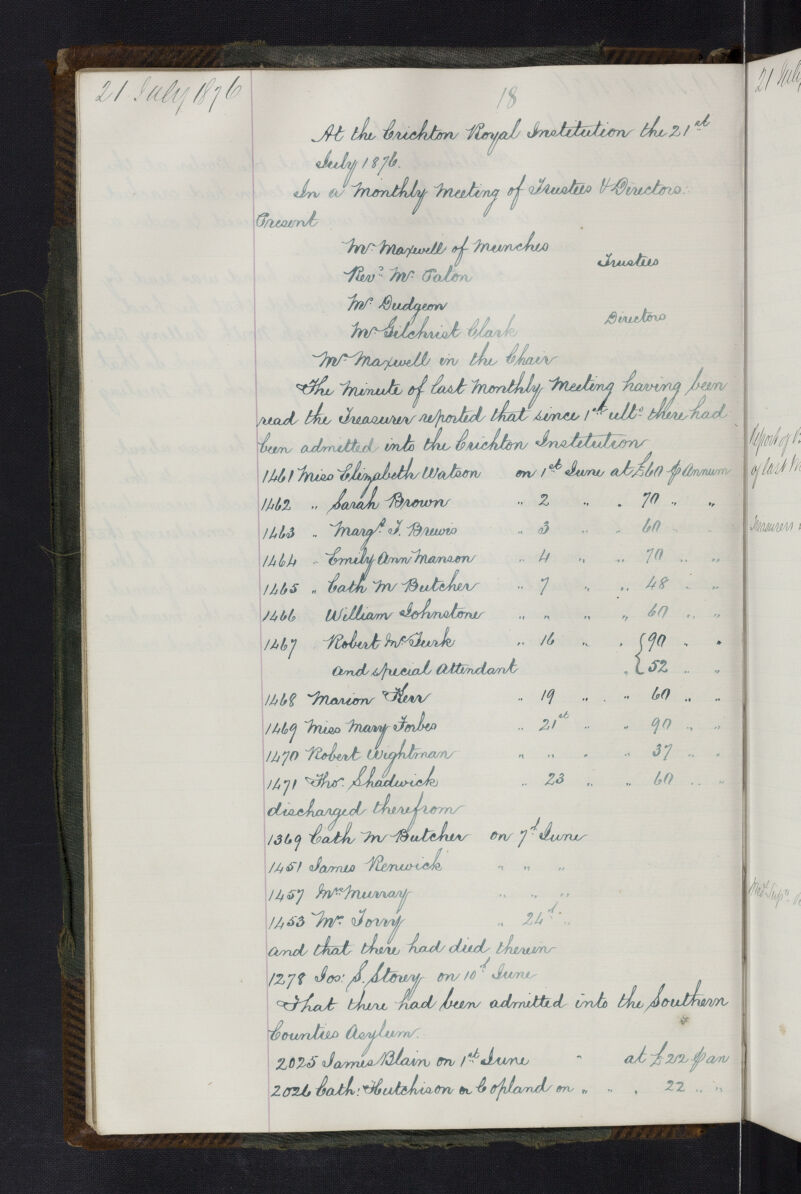 21 July 1876
18
At the Crichton Royal Institution the 21st
July 1876.
In a Monthly Meeting of Trustees & Directors.
Present
Mr Maxwell of Munches
Trustees
Revd Mr Paton
Mr Dudgeon
Directors
Mr Gilchrist Clark
Mr Maxwell in the Chair
The Minute of last Monthly Meeting having been
read the Treasurer reported that since 1st ulto there had
been admitted into the Crichton Institution
1461 Miss Elizabeth Watson on 1st June at £60 ⅌ Annum
1462 „ Sarah Brown „ 2 „ „ 70 „ „
1463 „ Margt. J. Brewis „ 3 „ „ 60 „ „
1464 „ Emily Ann Manson „ 4 „ „ 70 „ „
1465 „ Cath M Butcher „ 7 „ „ 48 „ „
1466 William Johnstone „ „ „ „ 60 „ „
1467 Robert McTurk „ 16 „ „ {90 „ „
and special Attendant „ {52 „ „
1468 Marion Kerr „ 19 „ „ 60 „ „
1469 Miss Mary Forbes „ 21st „ „ 90 „ „
1470 Robert Wightman „ „ „ „ 37 „ „
1471 Tho. Shadwick „ 23 „ „ 60 „ „
discharged therefrom
1369 Cath M Butcher on 7th June
1451 James Renwick „ „ „
1457 Mrs Murray „ „ „
1453 Mr Torry „ 24th „
and that there had died therein
1278 Jos: S. Storey on 10th June
That there had been admitted into the Southern
Counties Asylum.
2025 James Blain on 1st June „ at £22 ⅌ an
2026 Cath: Hutchison or Copland on „ „ „ 22 „ „
21 July
Report of
of last M
Treasurers